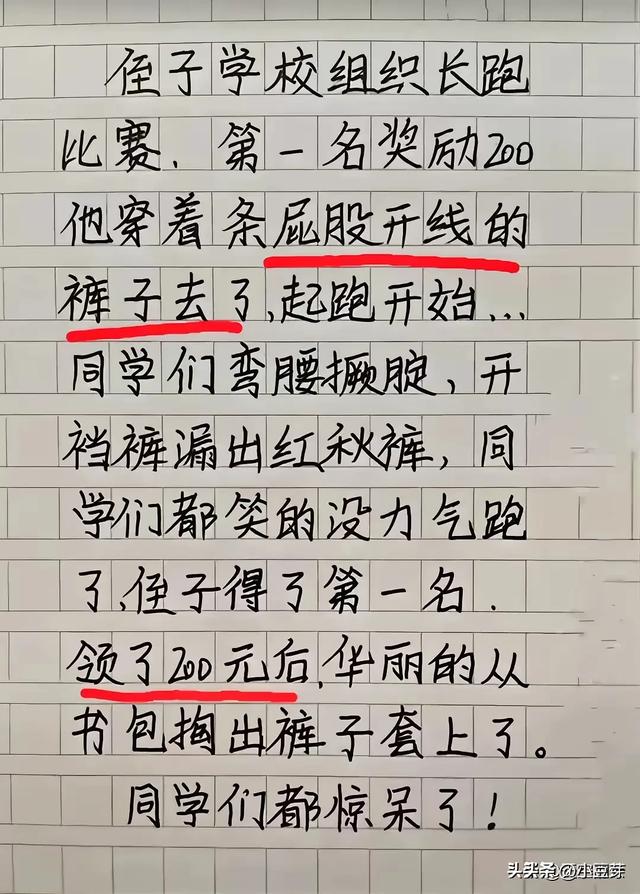 侄子学校组织长跑
比赛、第一名奖励200
他穿着条屁股开线的
裤子去了,起跑开始...
同学们弯腰撅腚,开
裆裤漏出红秋裤,同
学们都笑的没力气跑
了,侄子得了第一名.
领了200元后,华丽的从
书包掏出裤子套上了。
同学们都惊呆了!